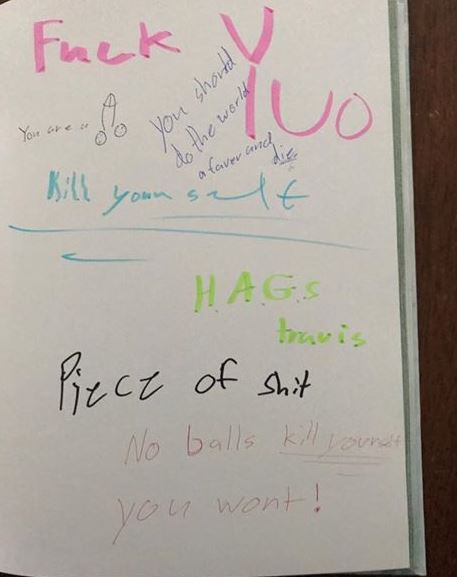 Fuck YUO
You are a
You should
do the world
a faver and
die
Kill your self
H.A.G.s
travis
Piece of shit
No balls kill yourself
you wont!